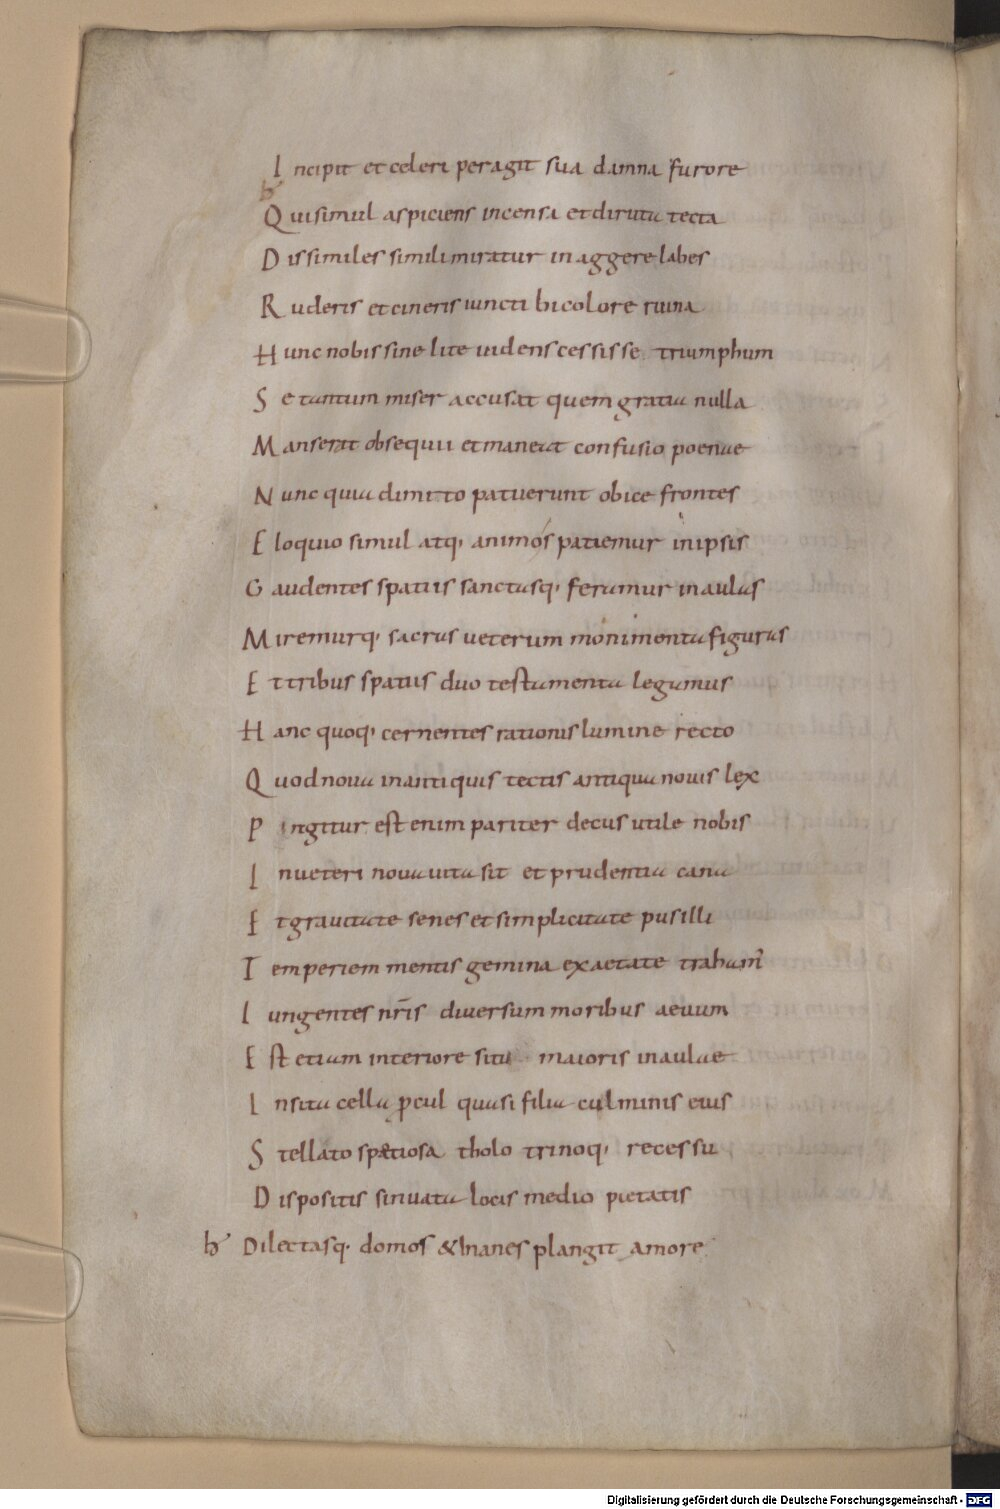 Incipit et celeri peragit sua damna furore
Qui simul aspiciens incensa et diruta tecta
Dissimiles simili miratur in aggere labes
Ruderis et cineris iuncti bicolore ruina
Hunc nobis sine lite uidens cessisse triumphum
Se tantum miser accusat quem gratia nulla
Manserat obsequii et maneat confusio poenae
Nunc quia dimitto patuerunt obice frontes
Eloquio simul atq; animos patiemur in ipsis
Gaudentes spatiis sanctasq; feramur in aulas
Miremurq; sacras ueterum monimenta figuras
Et tribus spatiis duo testamenta legamus
Hanc quoq; cernentes rationis lumine recto
Quod noua in antiquis tectis antiqua nouis lex
Pingitur est enim pariter decus utile nobis
In ueteri noua uita sit et prudentia cana
Et grauitate senes et simplicitate pusilli
Temperiem mentis gemina ex aetate trahamꝰ
Iungentes nr̄is diuersum moribus aeuum
Est etiam interiore situ maioris in aulae
Insita cella ꝓcul quasi filia culminis eius
Stellato spetiosa tholo trinoq; recessu
Dispositis sinuata locis medio pietatis
h Dilectasq; domos & inanes plangit amore
Digitalisierung gefördert durch die Deutsche Forschungsgemeinschaft - DFG